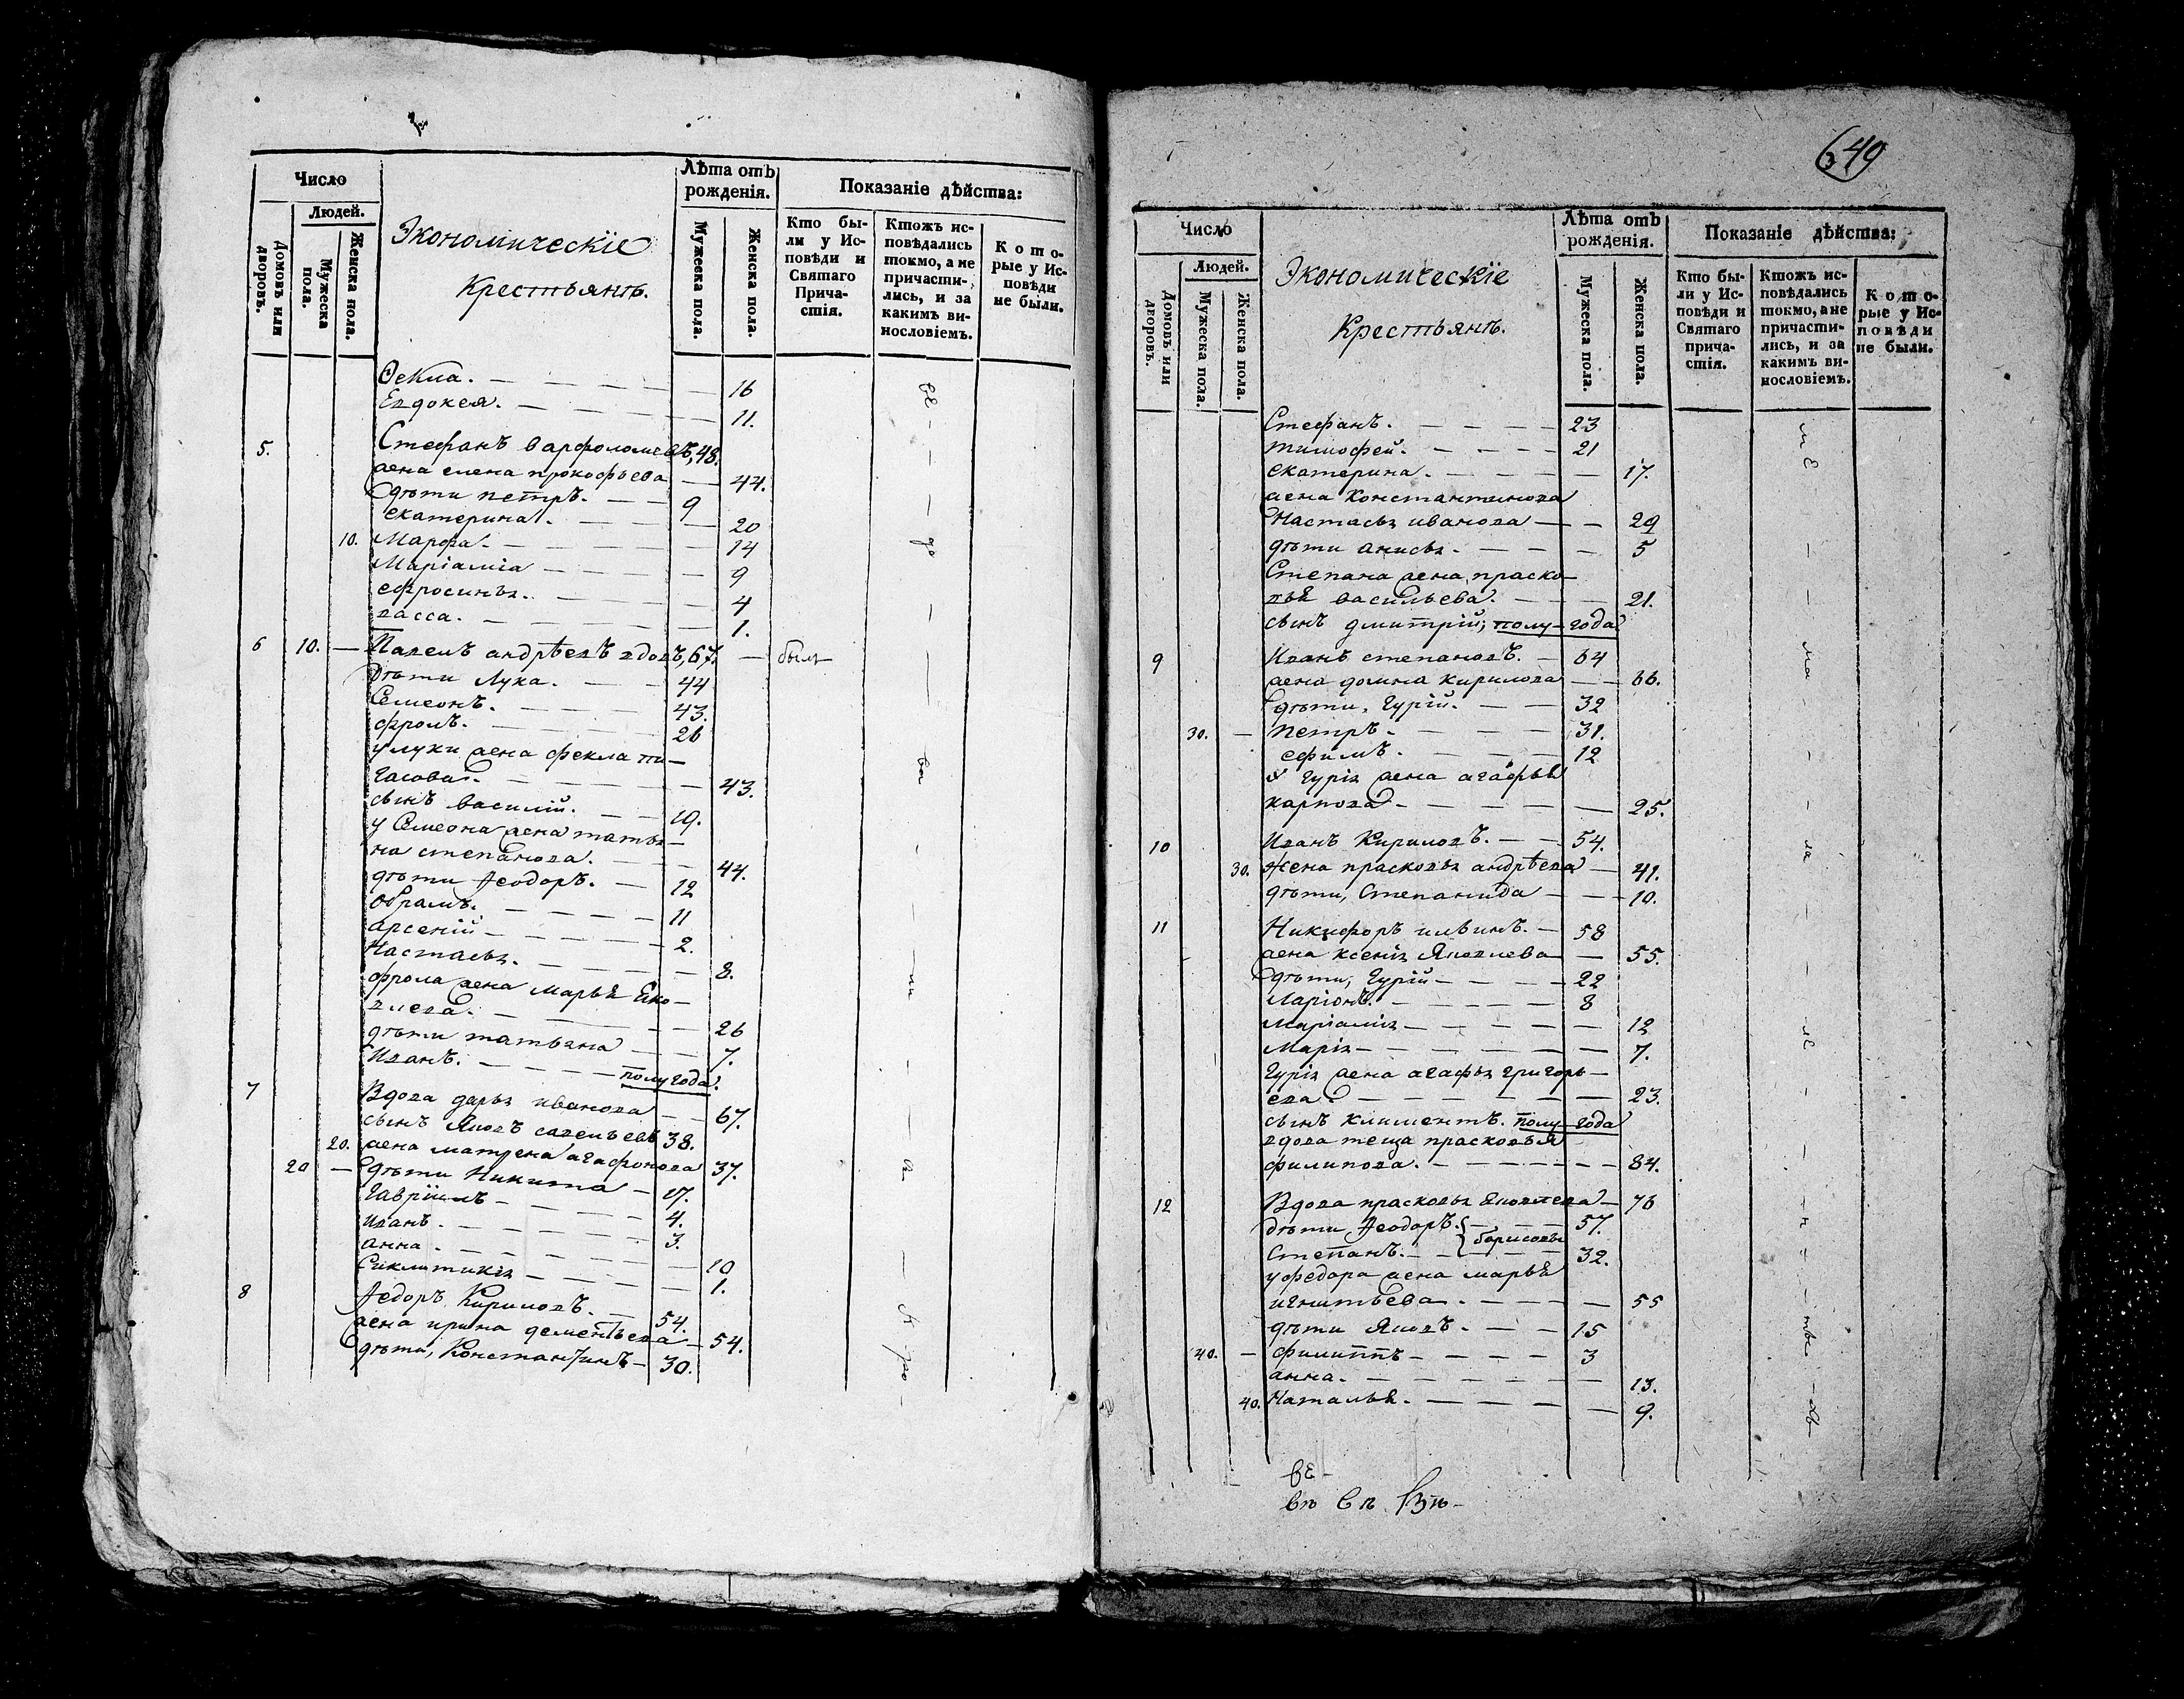 Число
Людей.
Домовъ или дворовъ.
Мужеска пола.
Женска пола.
Экономическіе
Крестьянъ.
Лѣта отъ рожденія.
Мужеска пола.
Женска пола.
Показаніе дѣйства:
Кто были у Исповѣди и Святаго Причастія.
Ктожъ исповѣдались токмо, а не причастились, и за какимъ винословіемъ.
Которые у Исповѣди не были.
Ѳекла. — 16
Евдокея. — 11.
5. Стефанъ варфоломеевъ, 48.
жена елена прокофьева — 44.
дѣти петръ. — 9
екатерина. — 20
10. Марфа. — 14
Маріамія — 9
ефросинья. — 4
васса. — 1.
6 10. — Павелъ андрѣевъ вдовъ, 67. — былъ
Дѣти Лука. — 44
Семеонъ. — 43.
фролъ. — 26
у луки жена фекла пи–
гасова. — 43.
сынъ василій. — 19.
у Семеона жена татья–
на степанова. — 44.
дѣти Ѳеодоръ. — 12
Обрамъ. — 11
арсеній — 2.
Настасья. — 8.
фрола жена марья Яко–
влева. — 26
дѣти татьяна — 7.
Иванъ. — полугода.
7 Вдова дарья иванова — 67.
сынъ Яковъ савельевъ 38.
20. жена матрена агафонова 37.
20 — дѣти Никита — 17.
Гавріилъ — 4.
иванъ. — 3.
анна. — 10
Сиклитикія — 1.
8 Ѳедоръ Кириловъ. — 54.
жена ирина дементьева — 54.
дѣти, Константинъ — 30.
649
Число
Людей.
Домовъ или дворовъ.
Мужеска пола.
Женска пола.
Экономическіе
Крестьянъ.
Лѣта отъ рожденія.
Мужеска пола.
Женска пола.
Показаніе дѣйства:
Кто были у Исповѣди и Святаго причастія.
Ктожъ исповѣдались токмо, а не причастились, и за какимъ винословіемъ.
Которые у Исповѣди не были.
Стефанъ. — 23
тимофей. — 21
екатерина. — 17.
жена Константинова
Настасья иванова — 29
дѣти анисья. — 5
Степана жена, праско–
вья васильева. — 21.
сынъ дмитрій, полу–года
9 Иванъ степановъ. — 64
жена домна кирилова — 66.
дѣти, Гурій. — 32
30. — петръ. — 31.
ефимъ. — 12
у гурія жена агафья
карпова — 25.
10 Иванъ Кириловъ. — 54.
30. Жена прасковья андрѣева — 41.
дѣти, Степанида — 10.
11 Никифоръ ильинъ. — 58
жена ксенія Яковлева — 55.
дѣти, Гурій — 22
Ларіонъ. — 8
маріамія — 12
Марія — 7.
Гурія жена агафья григорь–
ева — 23.
сынъ климентъ. полу–года
вдова теща прасковья
филипова. — 84.
12 Вдова прасковья Яковлева — 76
дѣти Ѳеодоръ. — 57.
борисовы
Степанъ. — 32.
у федора жена марья
игнатьева. — 55
дѣти Яковъ. — 15
40. — филиппъ — 3
анна. — 13.
40. Наталья. — 9.